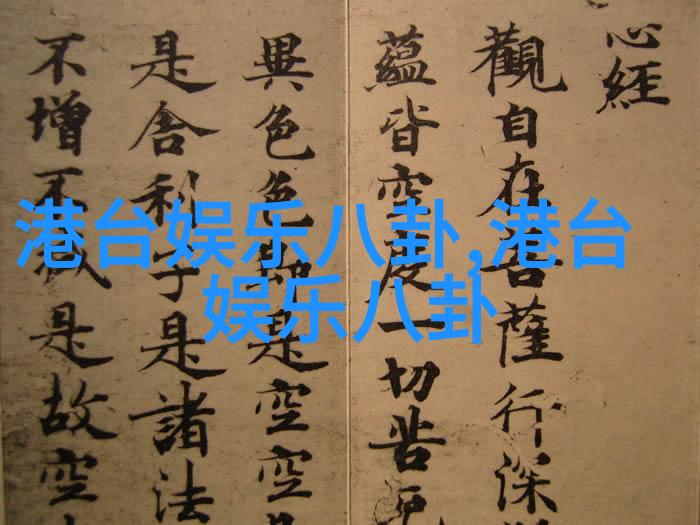 心經
觀自在菩薩行深
蘊皆空度一切苦厄
異色色即是空空
是舍利子是諸法
不增不減是故空
港台娱乐八卦,港台
娱乐八卦